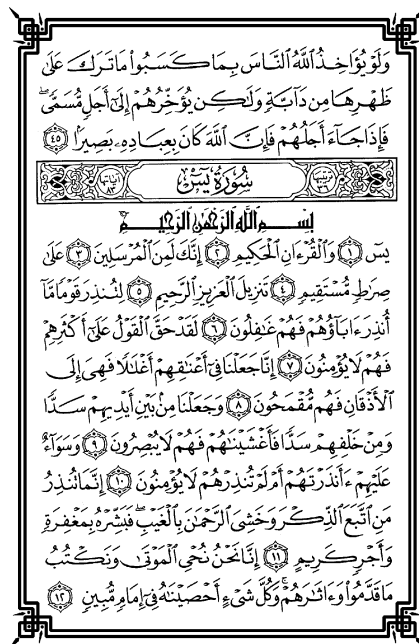 وَلَوْ يُؤَاخِذُ ٱللَّهُ ٱلنَّاسَ بِمَا كَسَبُوا۟ مَا تَرَكَ عَلَىٰ
ظَهْرِهَا مِن دَآبَّةٍ وَلَـٰكِن يُؤَخِّرُهُمْ إِلَىٰٓ أَجَلٍ مُّسَمًّى ۖ
فَإِذَا جَآءَ أَجَلُهُمْ فَإِنَّ ٱللَّهَ كَانَ بِعِبَادِهِۦ بَصِيرًۢا ٤٥
سُورَةُ يسٓ
بِسْمِ ٱللَّهِ ٱلرَّحْمَـٰنِ ٱلرَّحِيمِ
يسٓ ١ وَٱلْقُرْءَانِ ٱلْحَكِيمِ ٢ إِنَّكَ لَمِنَ ٱلْمُرْسَلِينَ ٣ عَلَىٰ
صِرَٰطٍ مُّسْتَقِيمٍ ٤ تَنزِيلَ ٱلْعَزِيزِ ٱلرَّحِيمِ ٥ لِتُنذِرَ قَوْمًا مَّآ
أُنذِرَ ءَابَآؤُهُمْ فَهُمْ غَـٰفِلُونَ ٦ لَقَدْ حَقَّ ٱلْقَوْلُ عَلَىٰٓ أَكْثَرِهِمْ
فَهُمْ لَا يُؤْمِنُونَ ٧ إِنَّا جَعَلْنَا فِىٓ أَعْنَـٰقِهِمْ أَغْلَـٰلًا فَهِىَ إِلَى
ٱلْأَذْقَانِ فَهُم مُّقْمَحُونَ ٨ وَجَعَلْنَا مِنۢ بَيْنِ أَيْدِيهِمْ سَدًّا
وَمِنْ خَلْفِهِمْ سَدًّا فَأَغْشَيْنَـٰهُمْ فَهُمْ لَا يُبْصِرُونَ ٩ وَسَوَآءٌ
عَلَيْهِمْ ءَأَنذَرْتَهُمْ أَمْ لَمْ تُنذِرْهُمْ لَا يُؤْمِنُونَ ١٠ إِنَّمَا تُنذِرُ
مَنِ ٱتَّبَعَ ٱلذِّكْرَ وَخَشِىَ ٱلرَّحْمَـٰنَ بِٱلْغَيْبِ ۖ فَبَشِّرْهُ بِمَغْفِرَةٍ
وَأَجْرٍ كَرِيمٍ ١١ إِنَّا نَحْنُ نُحْىِ ٱلْمَوْتَىٰ وَنَكْتُبُ
مَا قَدَّمُوا۟ وَءَاثَـٰرَهُمْ ۚ وَكُلَّ شَىْءٍ أَحْصَيْنَـٰهُ فِىٓ إِمَامٍ مُّبِينٍ ١٢